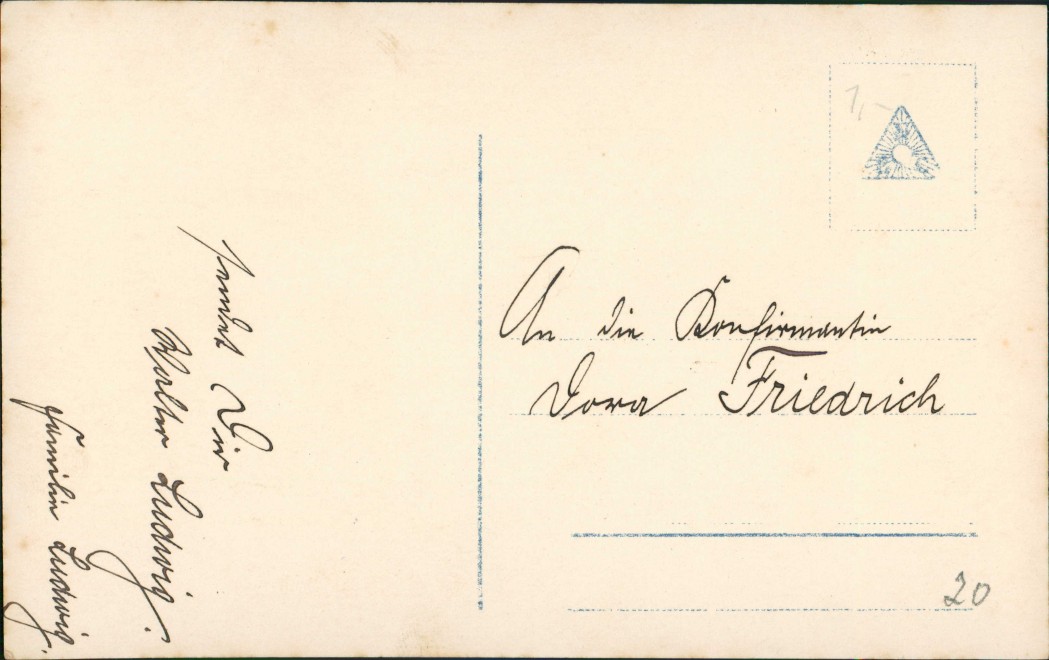 sendet Dir
Walter Ludwig.
Familie Ludwig.
1,-
An die Konfirmantin
Dora Friedrich
20